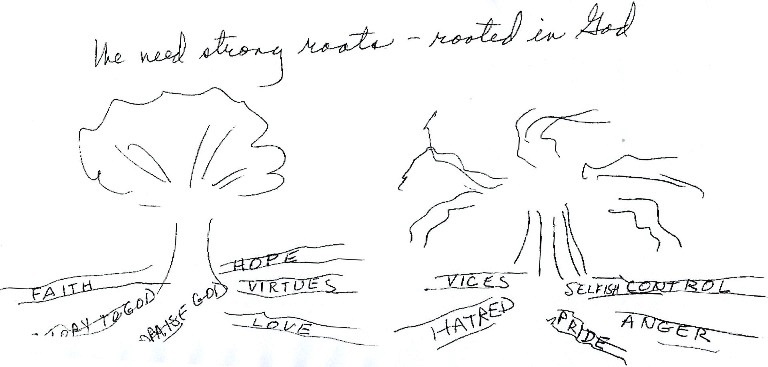 We need strong roots - rooted in God
FAITH
HOPE
VIRTUES
TO GOD
PRAISE GOD
LOVE
VICES
SELFISH CONTROL
HATRED
PRIDE
ANGER